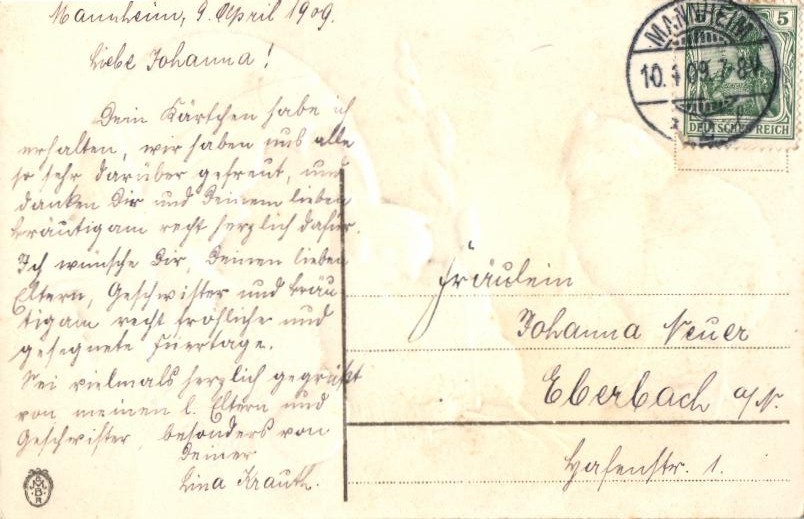 Mannheim, 9. April 1909.
Liebe Johanna!
Dein Kärtchen habe ich
erhalten, wir haben uns alle
so sehr darüber gefreut, und
danken Dir und Deinem lieben
Bräutigam recht herzlich dafür.
Ich wünsche Dir, Deinen lieben
Eltern, Geschwister und Bräu
tigam recht fröhliche und
gesegnete Feiertage.
Sei vielmals herzlich gegrüßt
von meinen l. Eltern und
Geschwister, besonders von
Deiner
Lina Krauth.
MANNHEIM
10.4.09. 7-8V
5
DEUTSCHES REICH
Fräulein
Johanna Neuer
Eberbach a/N.
Hafenstr. 1.